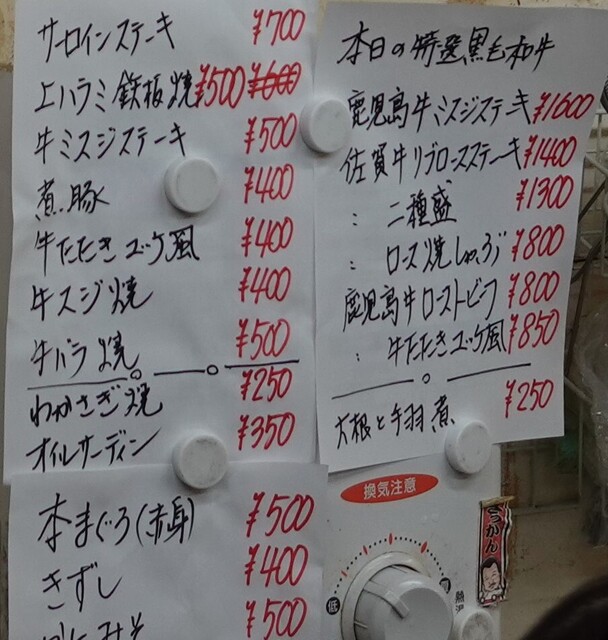 サーロインステーキ ¥700
上ハラミ鉄板焼 ¥500 ¥600
牛ミスジステーキ ¥500
煮豚 ¥400
牛たたきユッケ風 ¥400
牛スジ焼 ¥400
牛バラ焼 ¥500
わかさぎ焼 ¥250
オイルサーディン ¥350
本まぐろ(赤身) ¥500
きずし ¥400
¥500
本日の特選黒毛和牛
鹿児島牛ミスジステーキ ¥1600
佐賀牛リブロースステーキ ¥1400
: 二種盛 ¥1300
: ロース焼しゃぶ ¥800
鹿児島牛ローストビーフ ¥800
: 牛たたきユッケ風 ¥850
大根と手羽煮 ¥250
換気注意
低